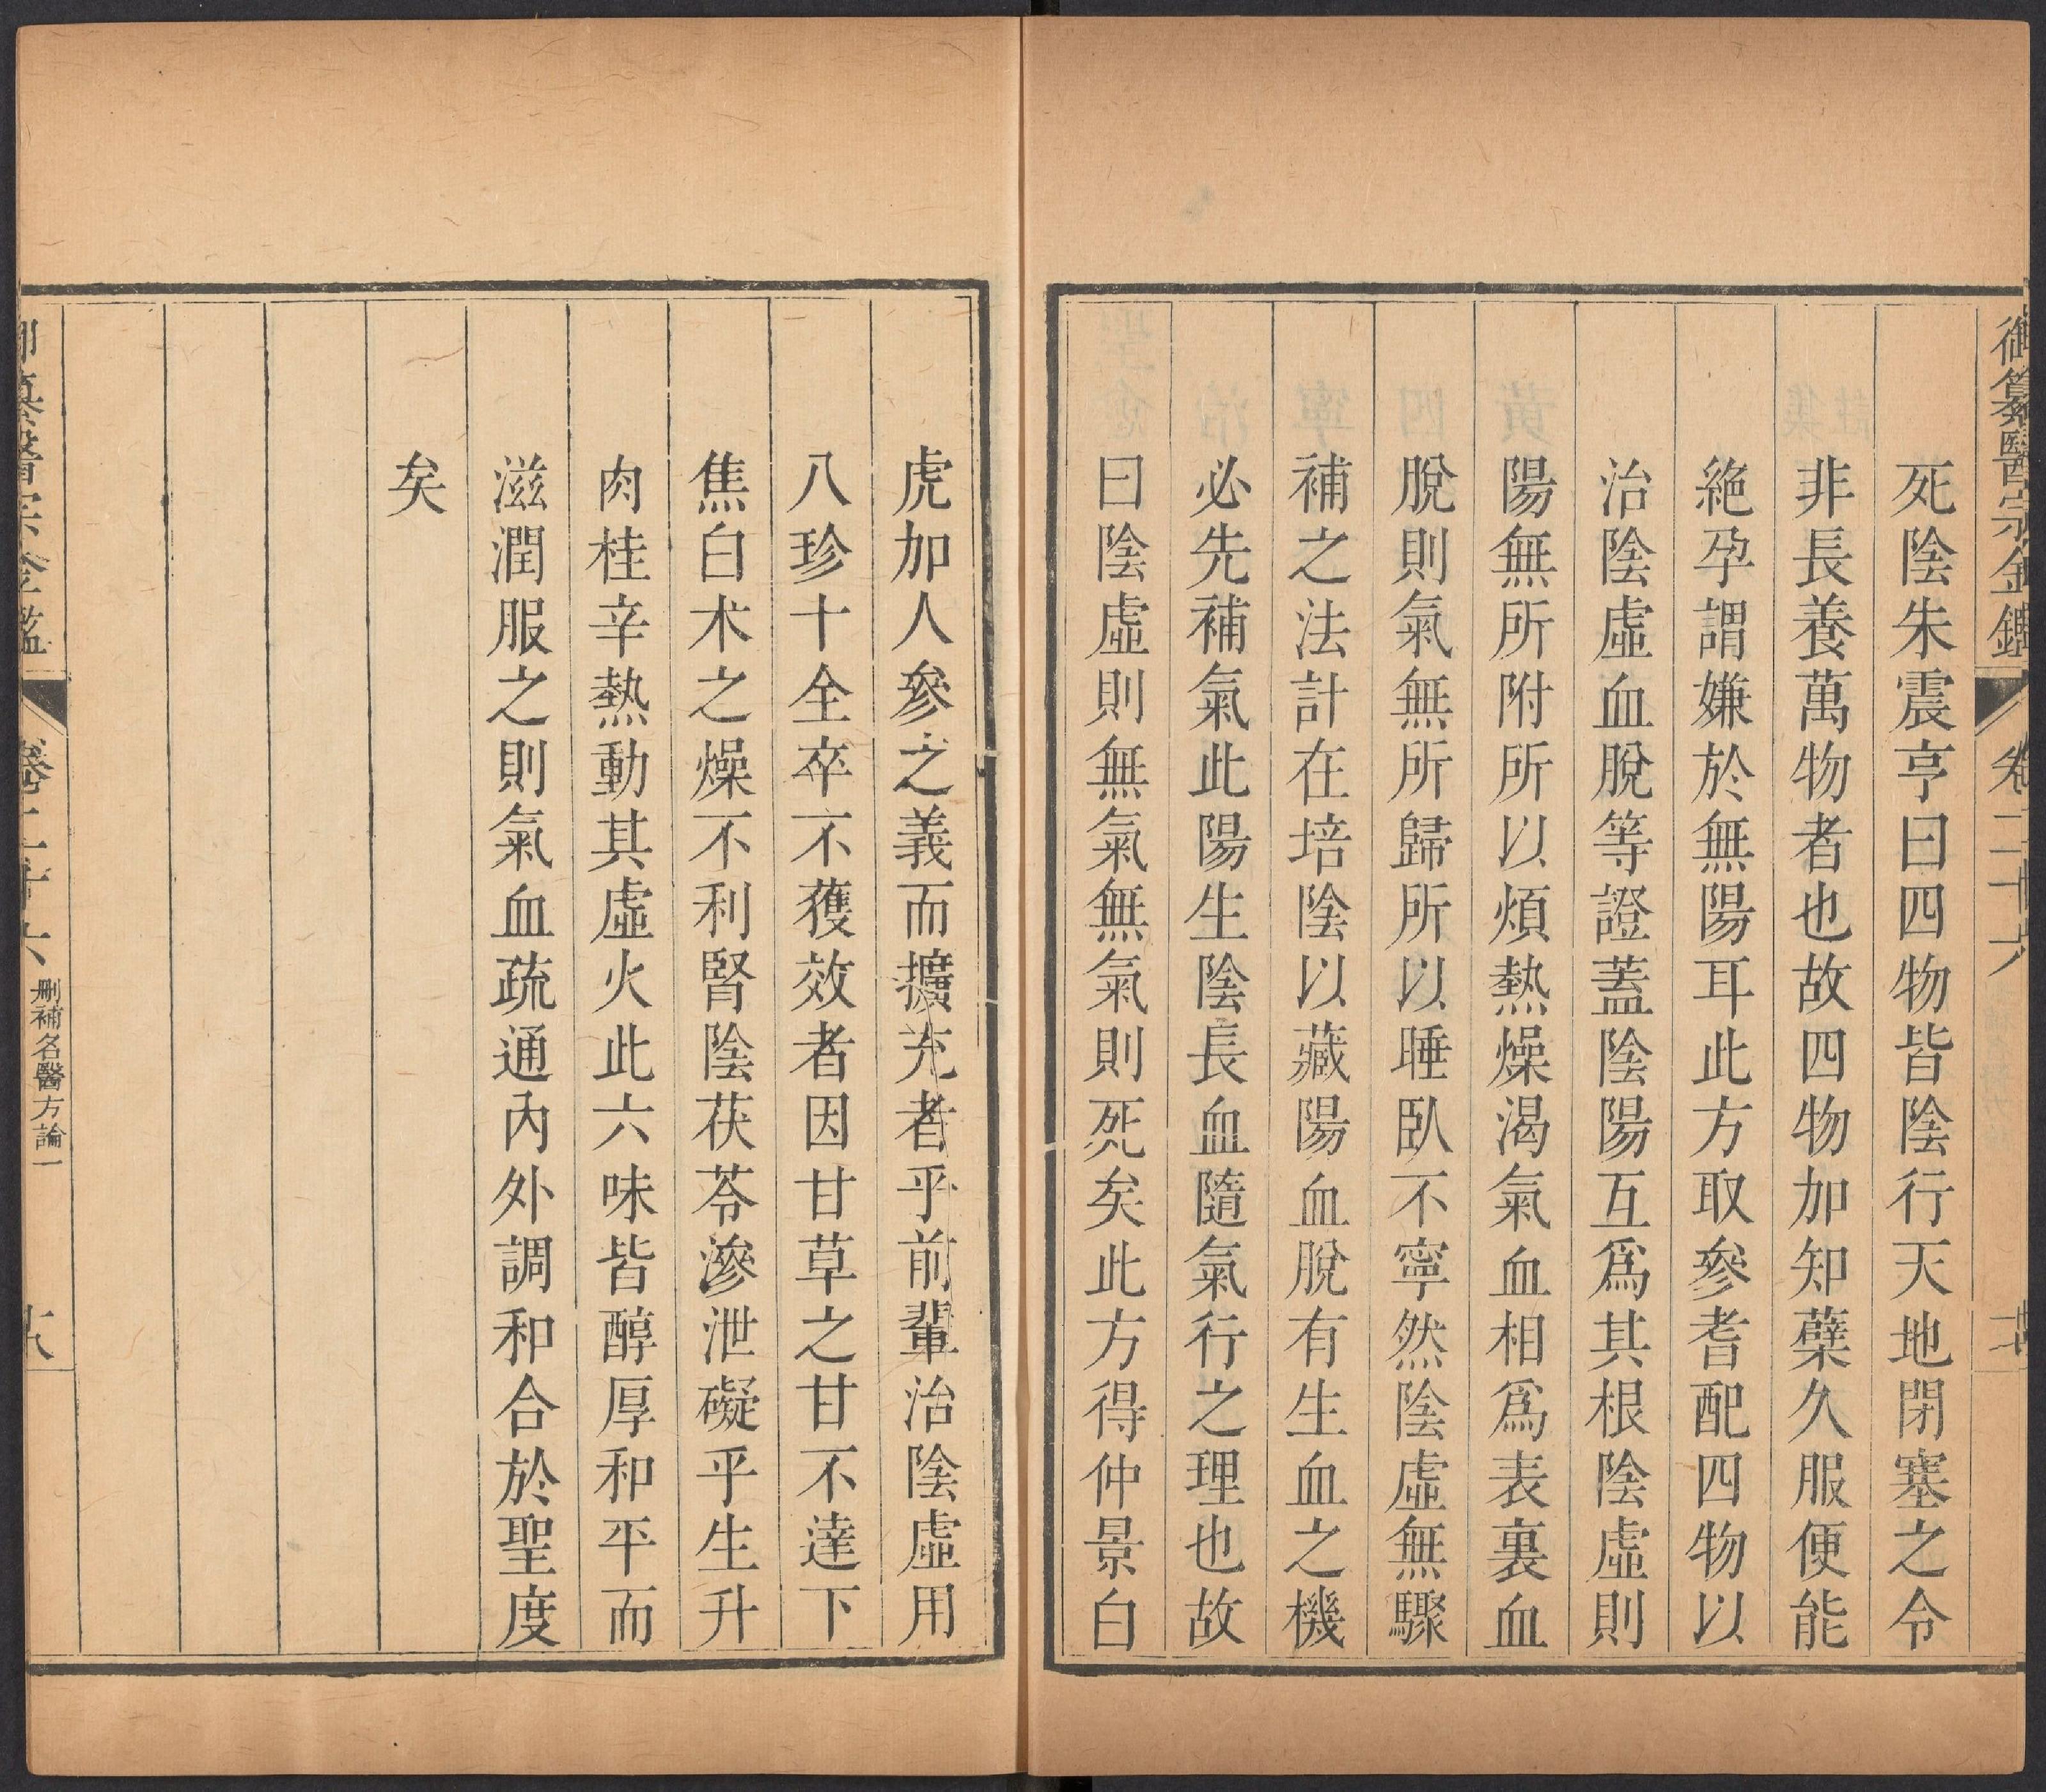 御纂醫宗金鑑 卷二十六
死陰朱震亨曰四物皆陰行天地閉塞之令
非長養萬物者也故四物加知蘗久服便能
絶孕謂嫌於無陽耳此方取參耆配四物以
治陰虛血脫等證蓋陰陽互爲其根陰虛則
陽無所附所以煩熱燥渴氣血相爲表裏血
脫則氣無所歸所以睡臥不寧然陰虛無驟
補之法計在培陰以藏陽血脫有生血之機
必先補氣此陽生陰長血隨氣行之理也故
曰陰虛則無氣無氣則死矣此方得仲景白
虎加人參之義而擴充者乎前輩治陰虛用
八珍十全卒不獲效者因甘草之甘不達下
焦白术之燥不利腎陰茯苓滲泄礙乎生升
肉桂辛熱動其虛火此六味皆醇厚和平而
滋潤服之則氣血疏通內外調和合於聖度
矣
御纂醫宗金鑑 卷二十六 刪補名醫方論一